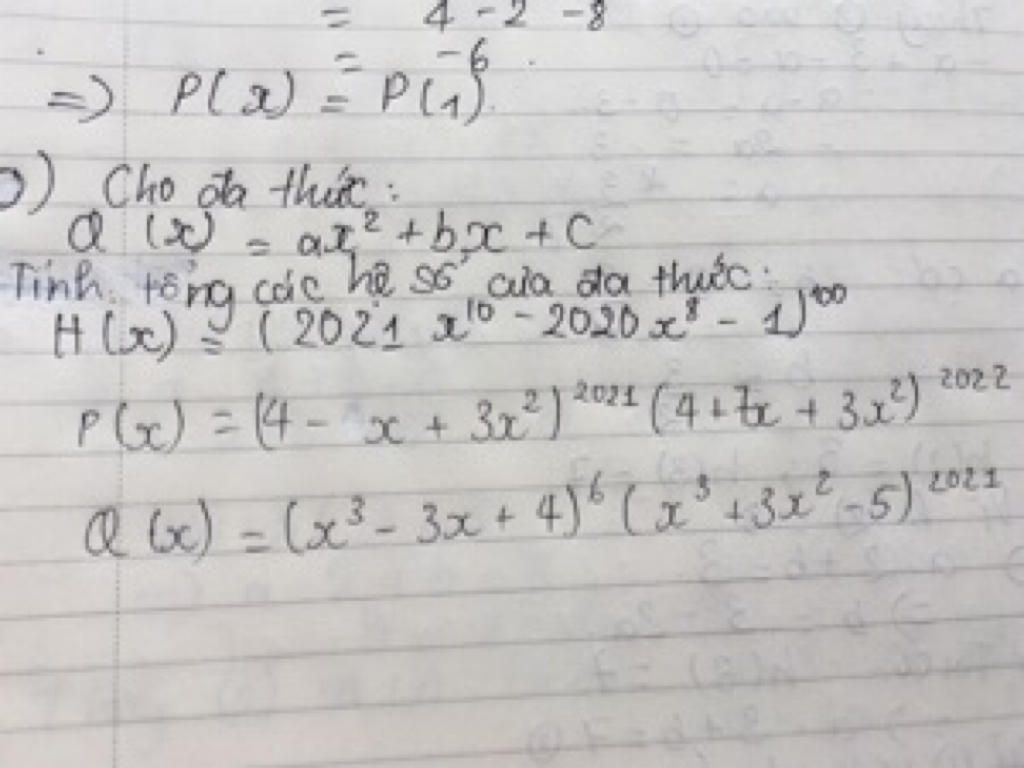 = 4 - 2 - 8
= -6.
=> P(x) = P(1).
) Cho đa thức:
Q (x) = ax² + bx + c
Tính tổng các hệ số của đa thức:
H(x) = (2021 x¹⁰ - 2020x⁸ - 1)¹⁰⁰
P(x) = (4 - x + 3x²)²⁰²¹ (4 + 7x + 3x²)²⁰²²
Q (x) = (x³ - 3x + 4)⁶ (x³ + 3x² - 5)²⁰²¹